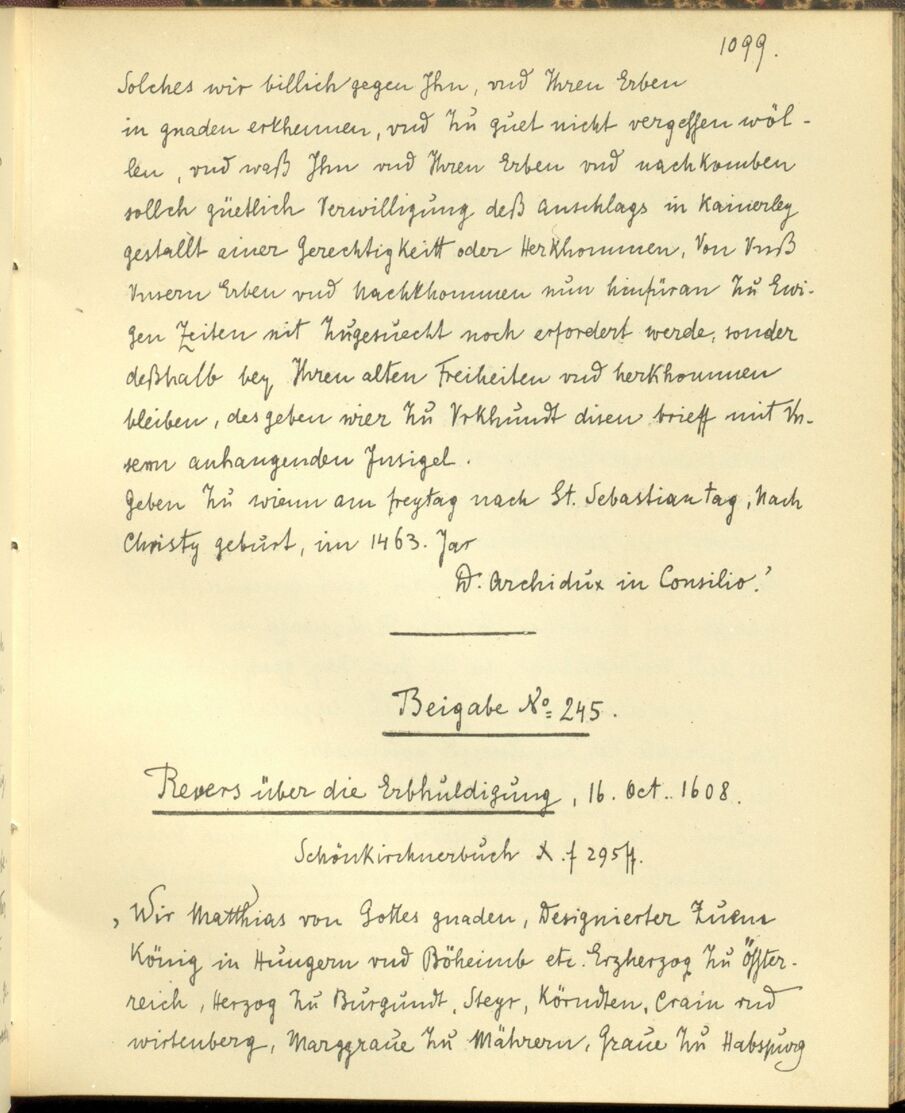 1099.
Solches wir billich gegen Ihn, vnd Ihren Erben
in gnaden erkhennen, vnd Zu guet nicht vergessen wöl-
len, vnd waß Ihn vnd Ihren Erben vnd nachkomben
sollch güetlich Verwilligung deß Anschlags in Kainerley
gestallt ainer Gerechtigkeitt oder Herkhommen, Von Vnß
Vnsern Erben vnd Nachkhommen nun hinfüran Zu Ewi-
gen Zeiten nit Zugesuecht noch erfordert werde, sonder
deßhalb bey Ihren alten Freiheiten vnd herkhommen
bleiben, des geben wier Zu Vrkhundt disen brieff mit Vn-
sern anhangenden Insigel.
Geben Zu wienn am freytag nach St. Sebastian tag, Nach
Christy geburt, im 1463. Jar
D. Archidux in Consilio.'
Beigabe No 245.
Revers über die Erbhuldigung, 16. Oct. 1608.
Schönkirchnerbuch X. f 295ff.
'Wir Matthias von Gottes gnaden, Designierter Zuem
König in Hungern vnd Böheimb etc. Erzherzog Zu Össter-
reich, Herzog Zu Burgundt, Steyr, Körndten, Crain vnd
wirtenberg, Marggraue Zu Mährern, Graue Zu Habspurg